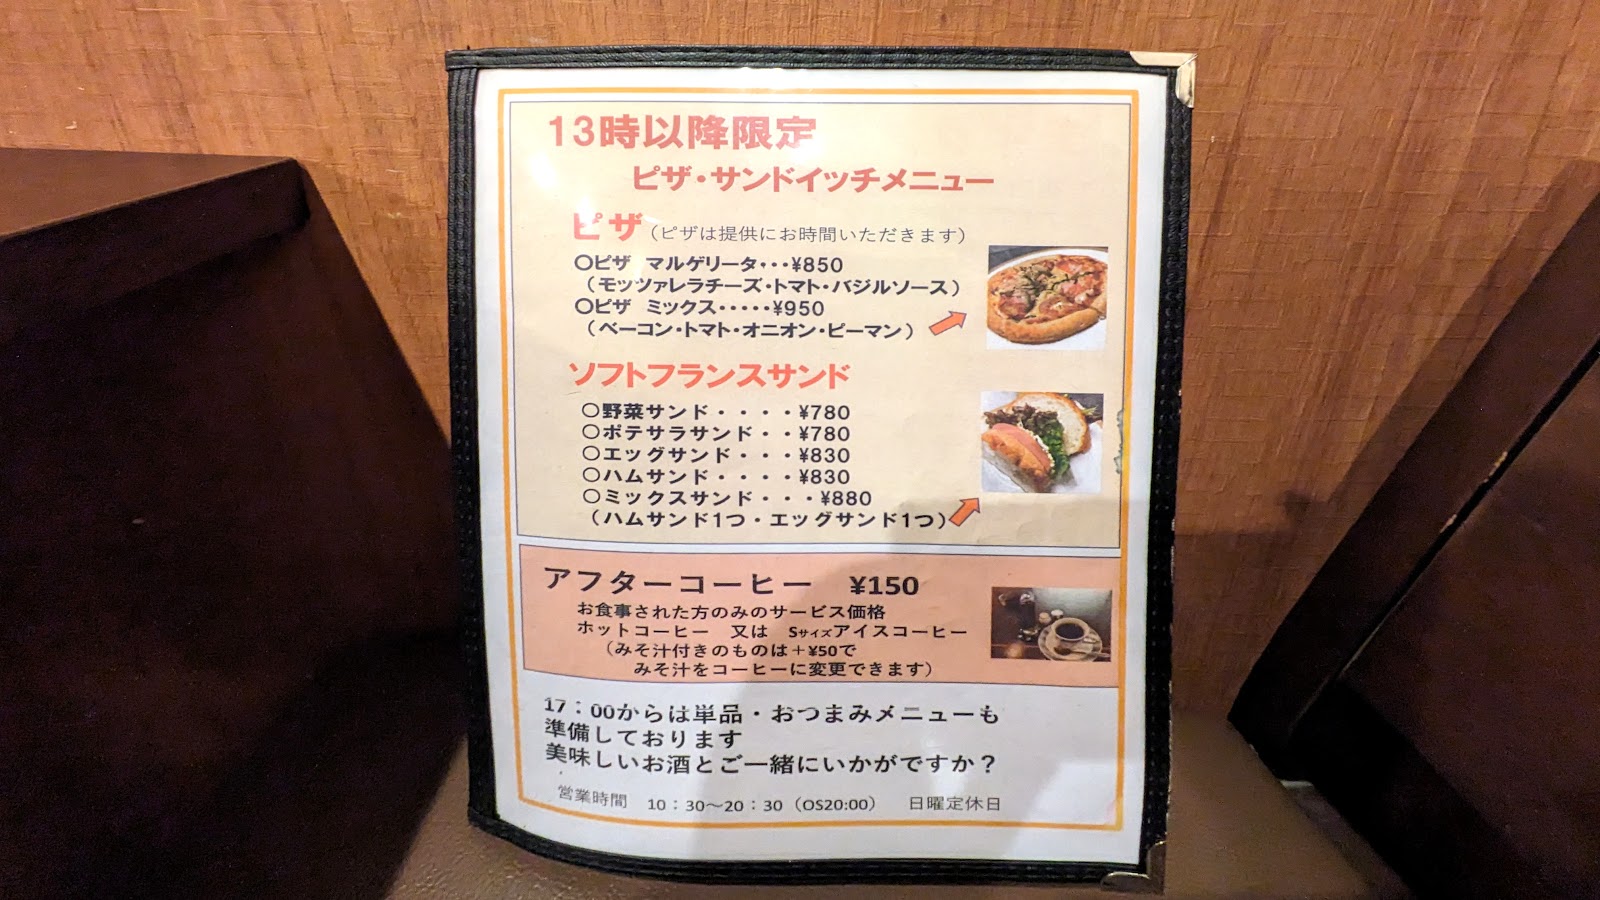 13時以降限定
ピザ・サンドイッチメニュー
ピザ（ピザは提供にお時間いただきます）
〇ピザ マルゲリータ・・・¥850
（モッツァレラチーズ・トマト・バジルソース）
〇ピザ ミックス・・・・・¥950
（ベーコン・トマト・オニオン・ピーマン）
ソフトフランスサンド
〇野菜サンド・・・・¥780
〇ポテサラサンド・・¥780
〇エッグサンド・・・¥830
〇ハムサンド・・・・¥830
〇ミックスサンド・・・¥880
（ハムサンド1つ・エッグサンド1つ）
アフターコーヒー ¥150
お食事された方のみのサービス価格
ホットコーヒー 又は Sサイズアイスコーヒー
（みそ汁付きのものは＋¥50で
みそ汁をコーヒーに変更できます）
17：00からは単品・おつまみメニューも
準備しております
美味しいお酒とご一緒にいかがですか？
営業時間 10：30～20：30（OS20:00） 日曜定休日